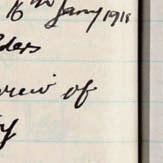 16th Jany 1918
lders
view of
y